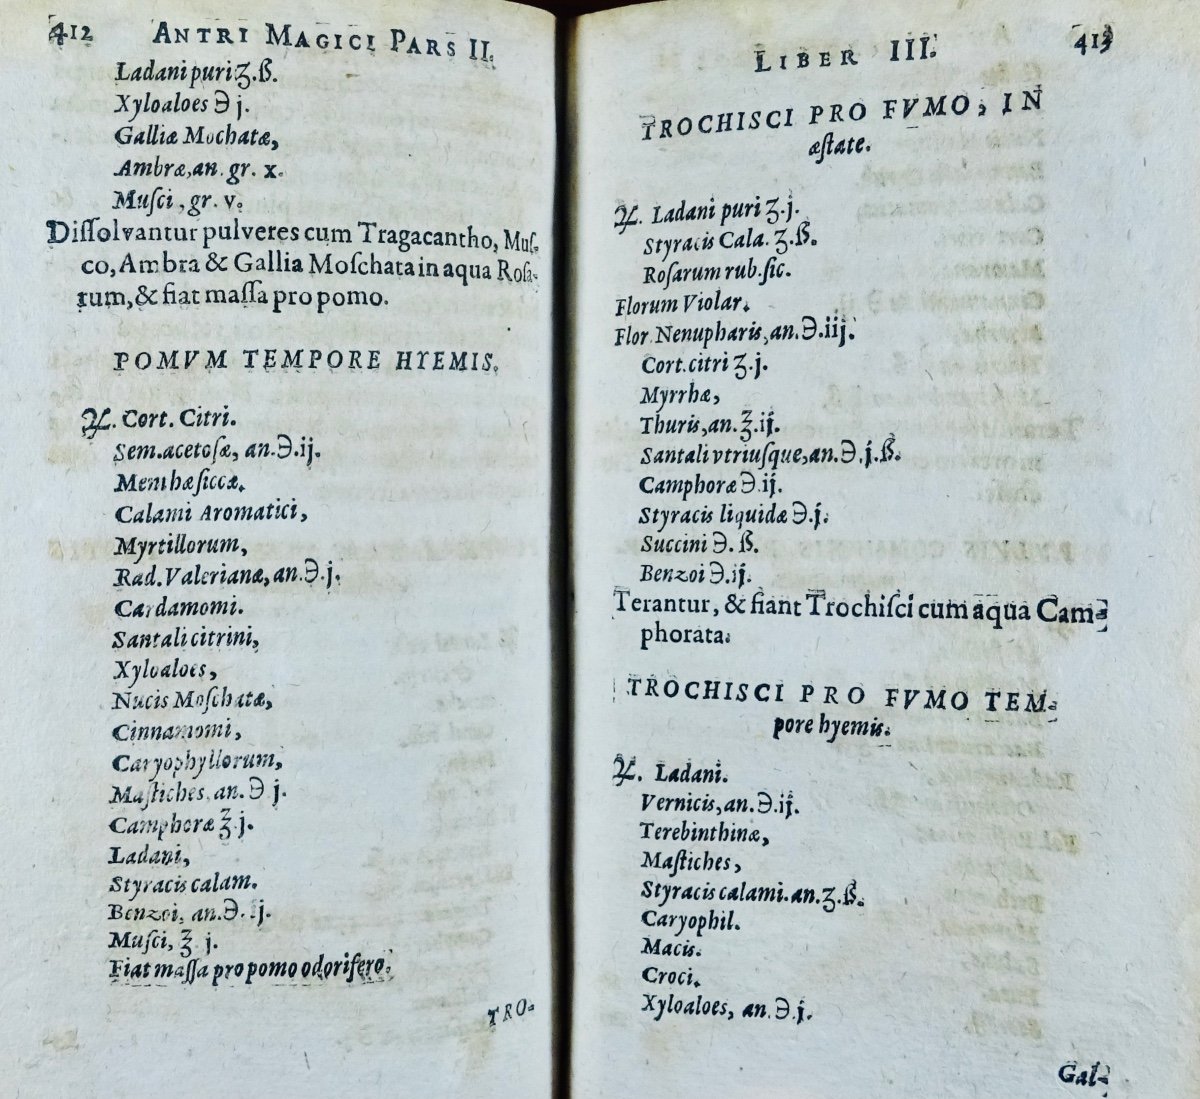 412 ANTRI MAGICI PARS II.
Ladani puri ʒ.ß.
Xyloaloes ℈ j.
Galliæ Mochatæ,
Ambræ, an. gr. x.
Muſci, gr. v.
Diſſolvantur pulveres cum Tragacantho, Muſ-
co, Ambra & Gallia Moſchata in aqua Roſa-
rum, & fiat maſſa pro pomo.
POMVM TEMPORE HYEMIS.
℞. Cort. Citri.
Sem. acetoſæ, an.℈.ij.
Menthæ ſiccæ.
Calami Aromatici,
Myrtillorum,
Rad. Valerianæ, an.℈.j.
Cardamomi.
Santali citrini,
Xyloaloes,
Nucis Moſchatæ,
Cinnamomi,
Caryophyllorum,
Maſtiches, an.℈ j.
Camphoræ ʒ.j.
Ladani,
Styracis calam.
Benzoi, an.℈.ij.
Muſci, ʒ j.
Fiat maſſa pro pomo odorifero.
TRO-
LIBER III. 413
TROCHISCI PRO FVMO, IN
æſtate.
℞. Ladani puri ʒ.j.
Styracis Cala. ʒ.ß.
Roſarum rub. ſic.
Florum Violar.
Flor. Nenupharis, an.℈.iij.
Cort. citri ʒ.j.
Myrrhæ,
Thuris, an.ʒ.ij.
Santali vtriuſque, an.℈.j.ß.
Camphoræ ℈.ij.
Styracis liquidæ ℈.j.
Succini ℈.ß.
Benzoi ℈.ij.
Terantur, & fiant Trochiſci cum aqua Cam-
phorata.
TROCHISCI PRO FVMO TEM-
pore hyemis.
℞. Ladani.
Vernicis, an.℈.ij.
Terebinthinæ,
Maſtiches,
Styracis calami. an.ʒ.ß.
Caryophil.
Macis.
Croci.
Xyloaloes, an.℈.j.
Gal-